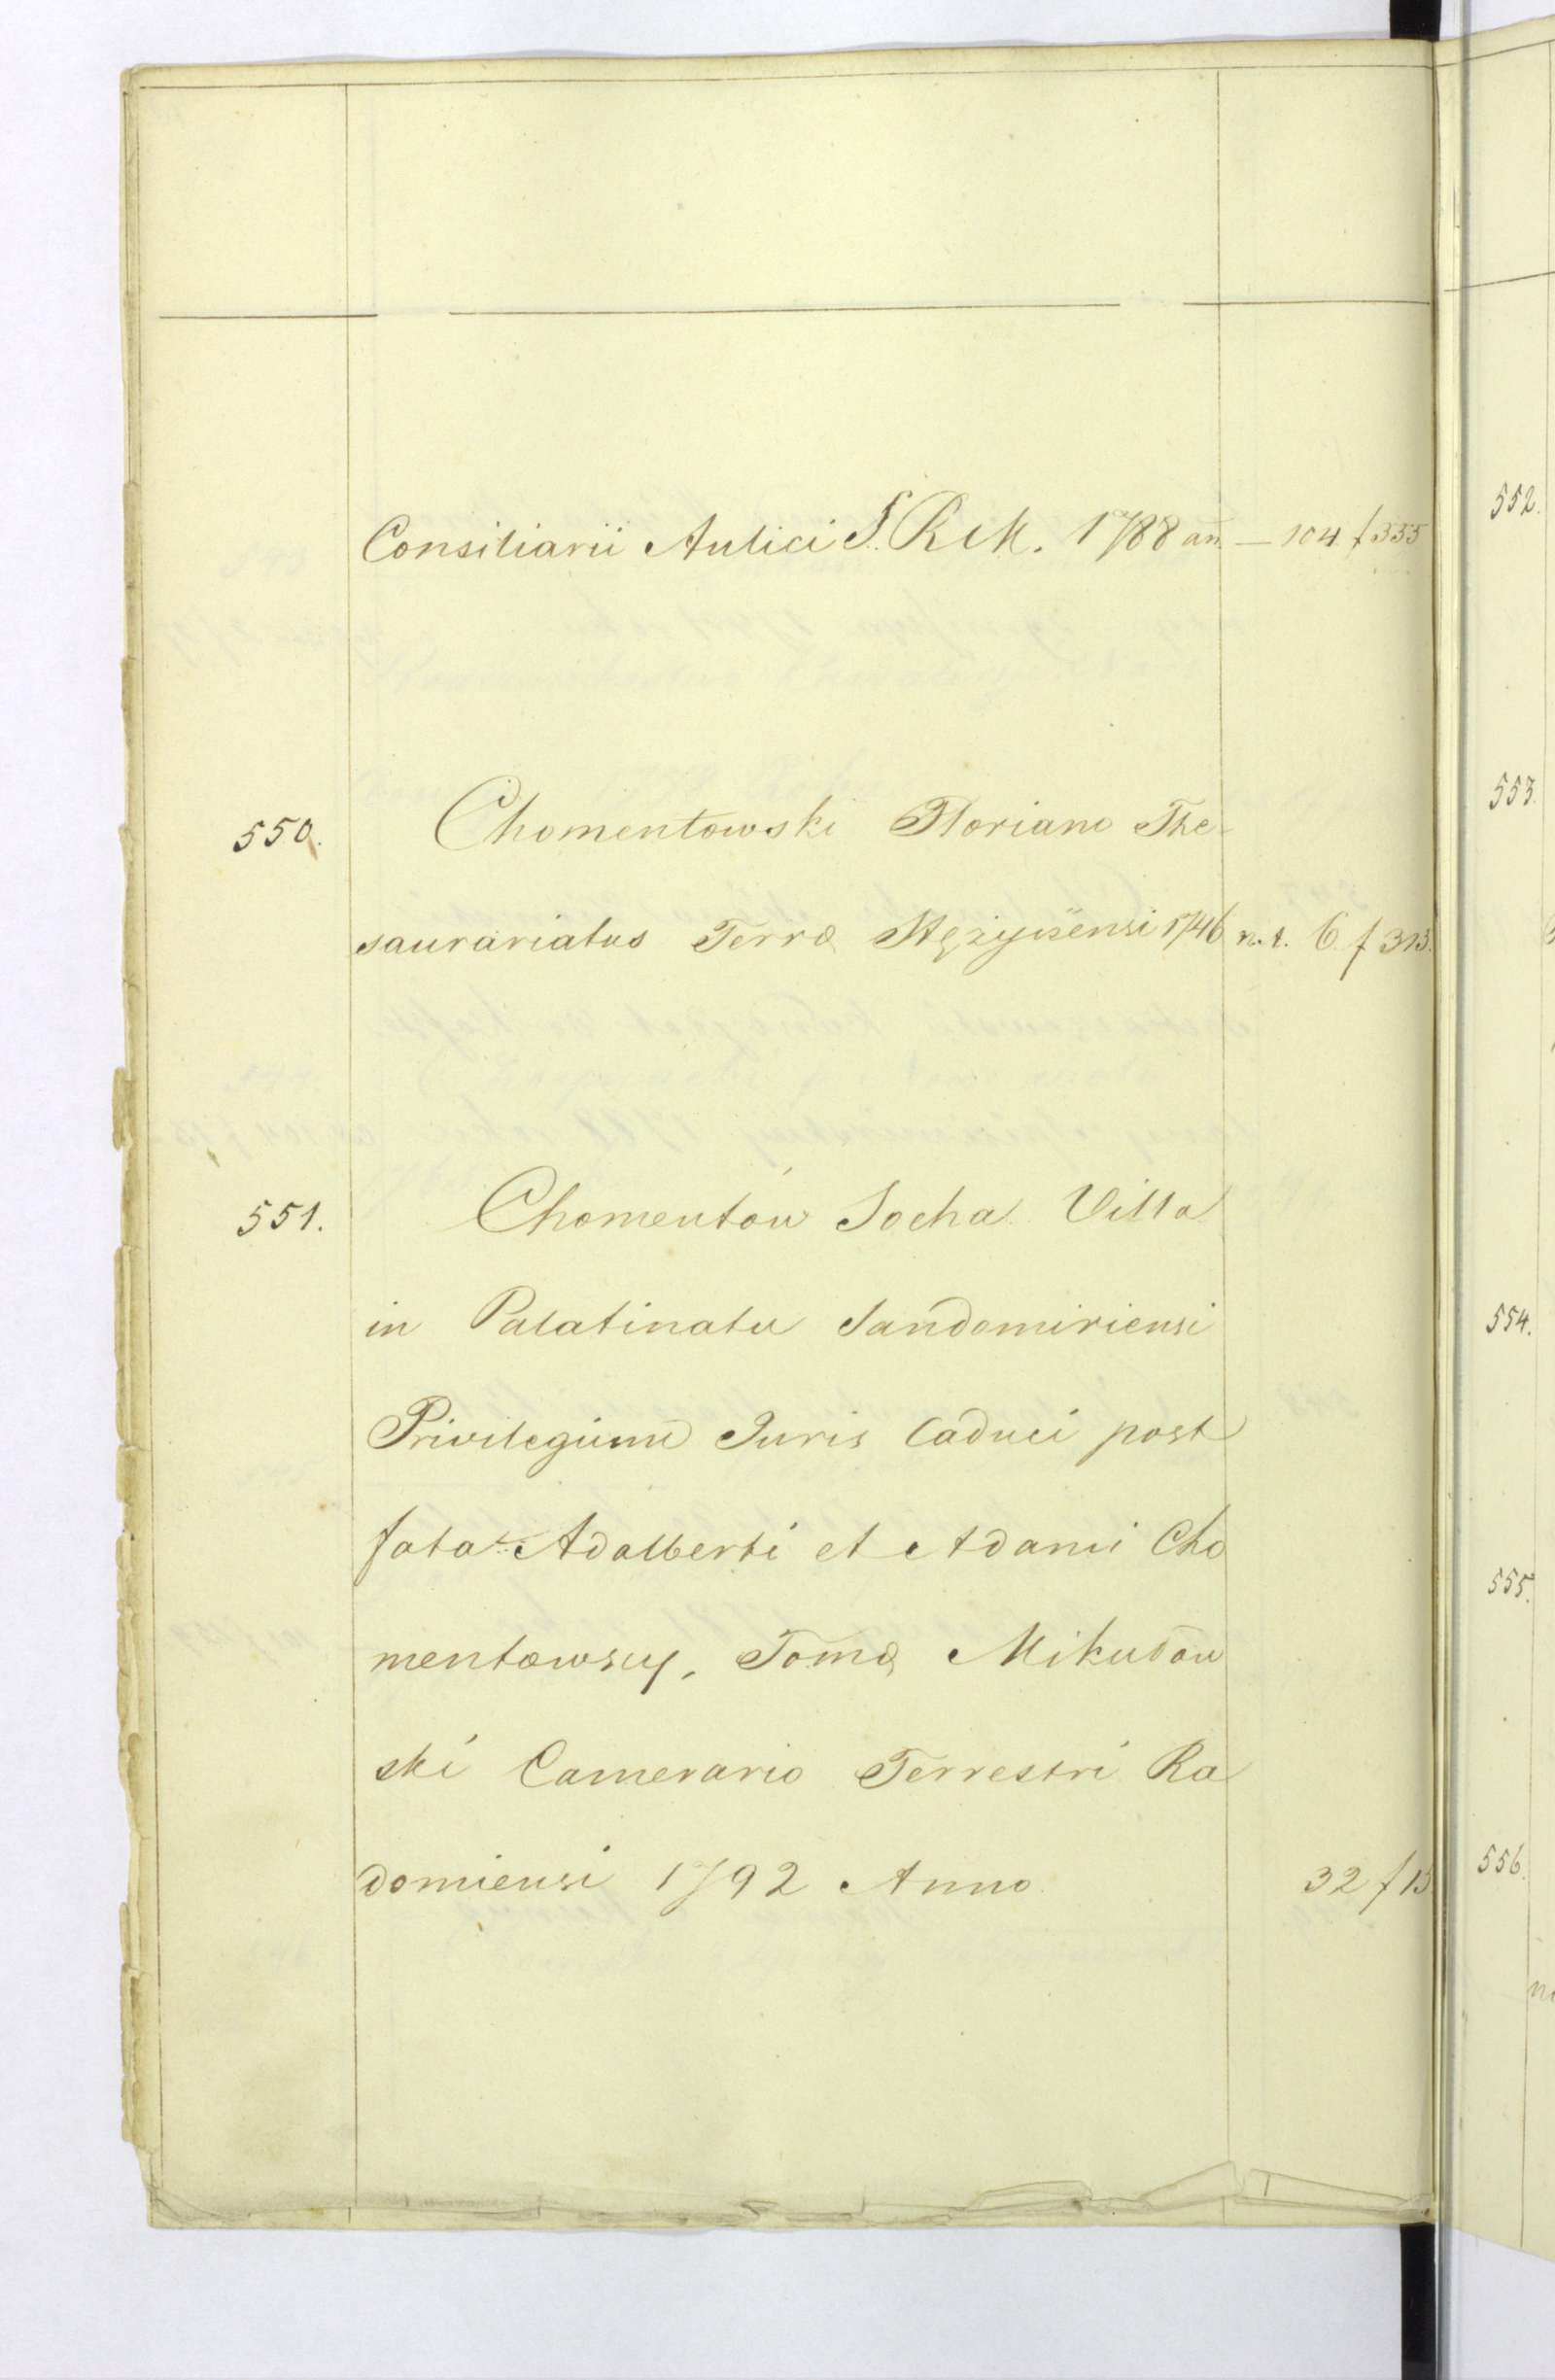 Consiliarii Aulici S. R. M. 1788 an̄. — 104 f 335
550. Chomentowski Floriano The-
saurariatus Terræ Stężycensi 1746 n. t. 6 f 313.
551. Chomentów Socha Villa
in Palatinatu Sandomiriensi
Privilegium Juris Caduci post
fata Adalberti et Adami Cho
mentowscy, Tomæ Mikułow
ski Camerario Terrestri Ra
domiensi 1792 Anno 32 f 15
552.
553.
554.
555.
556.